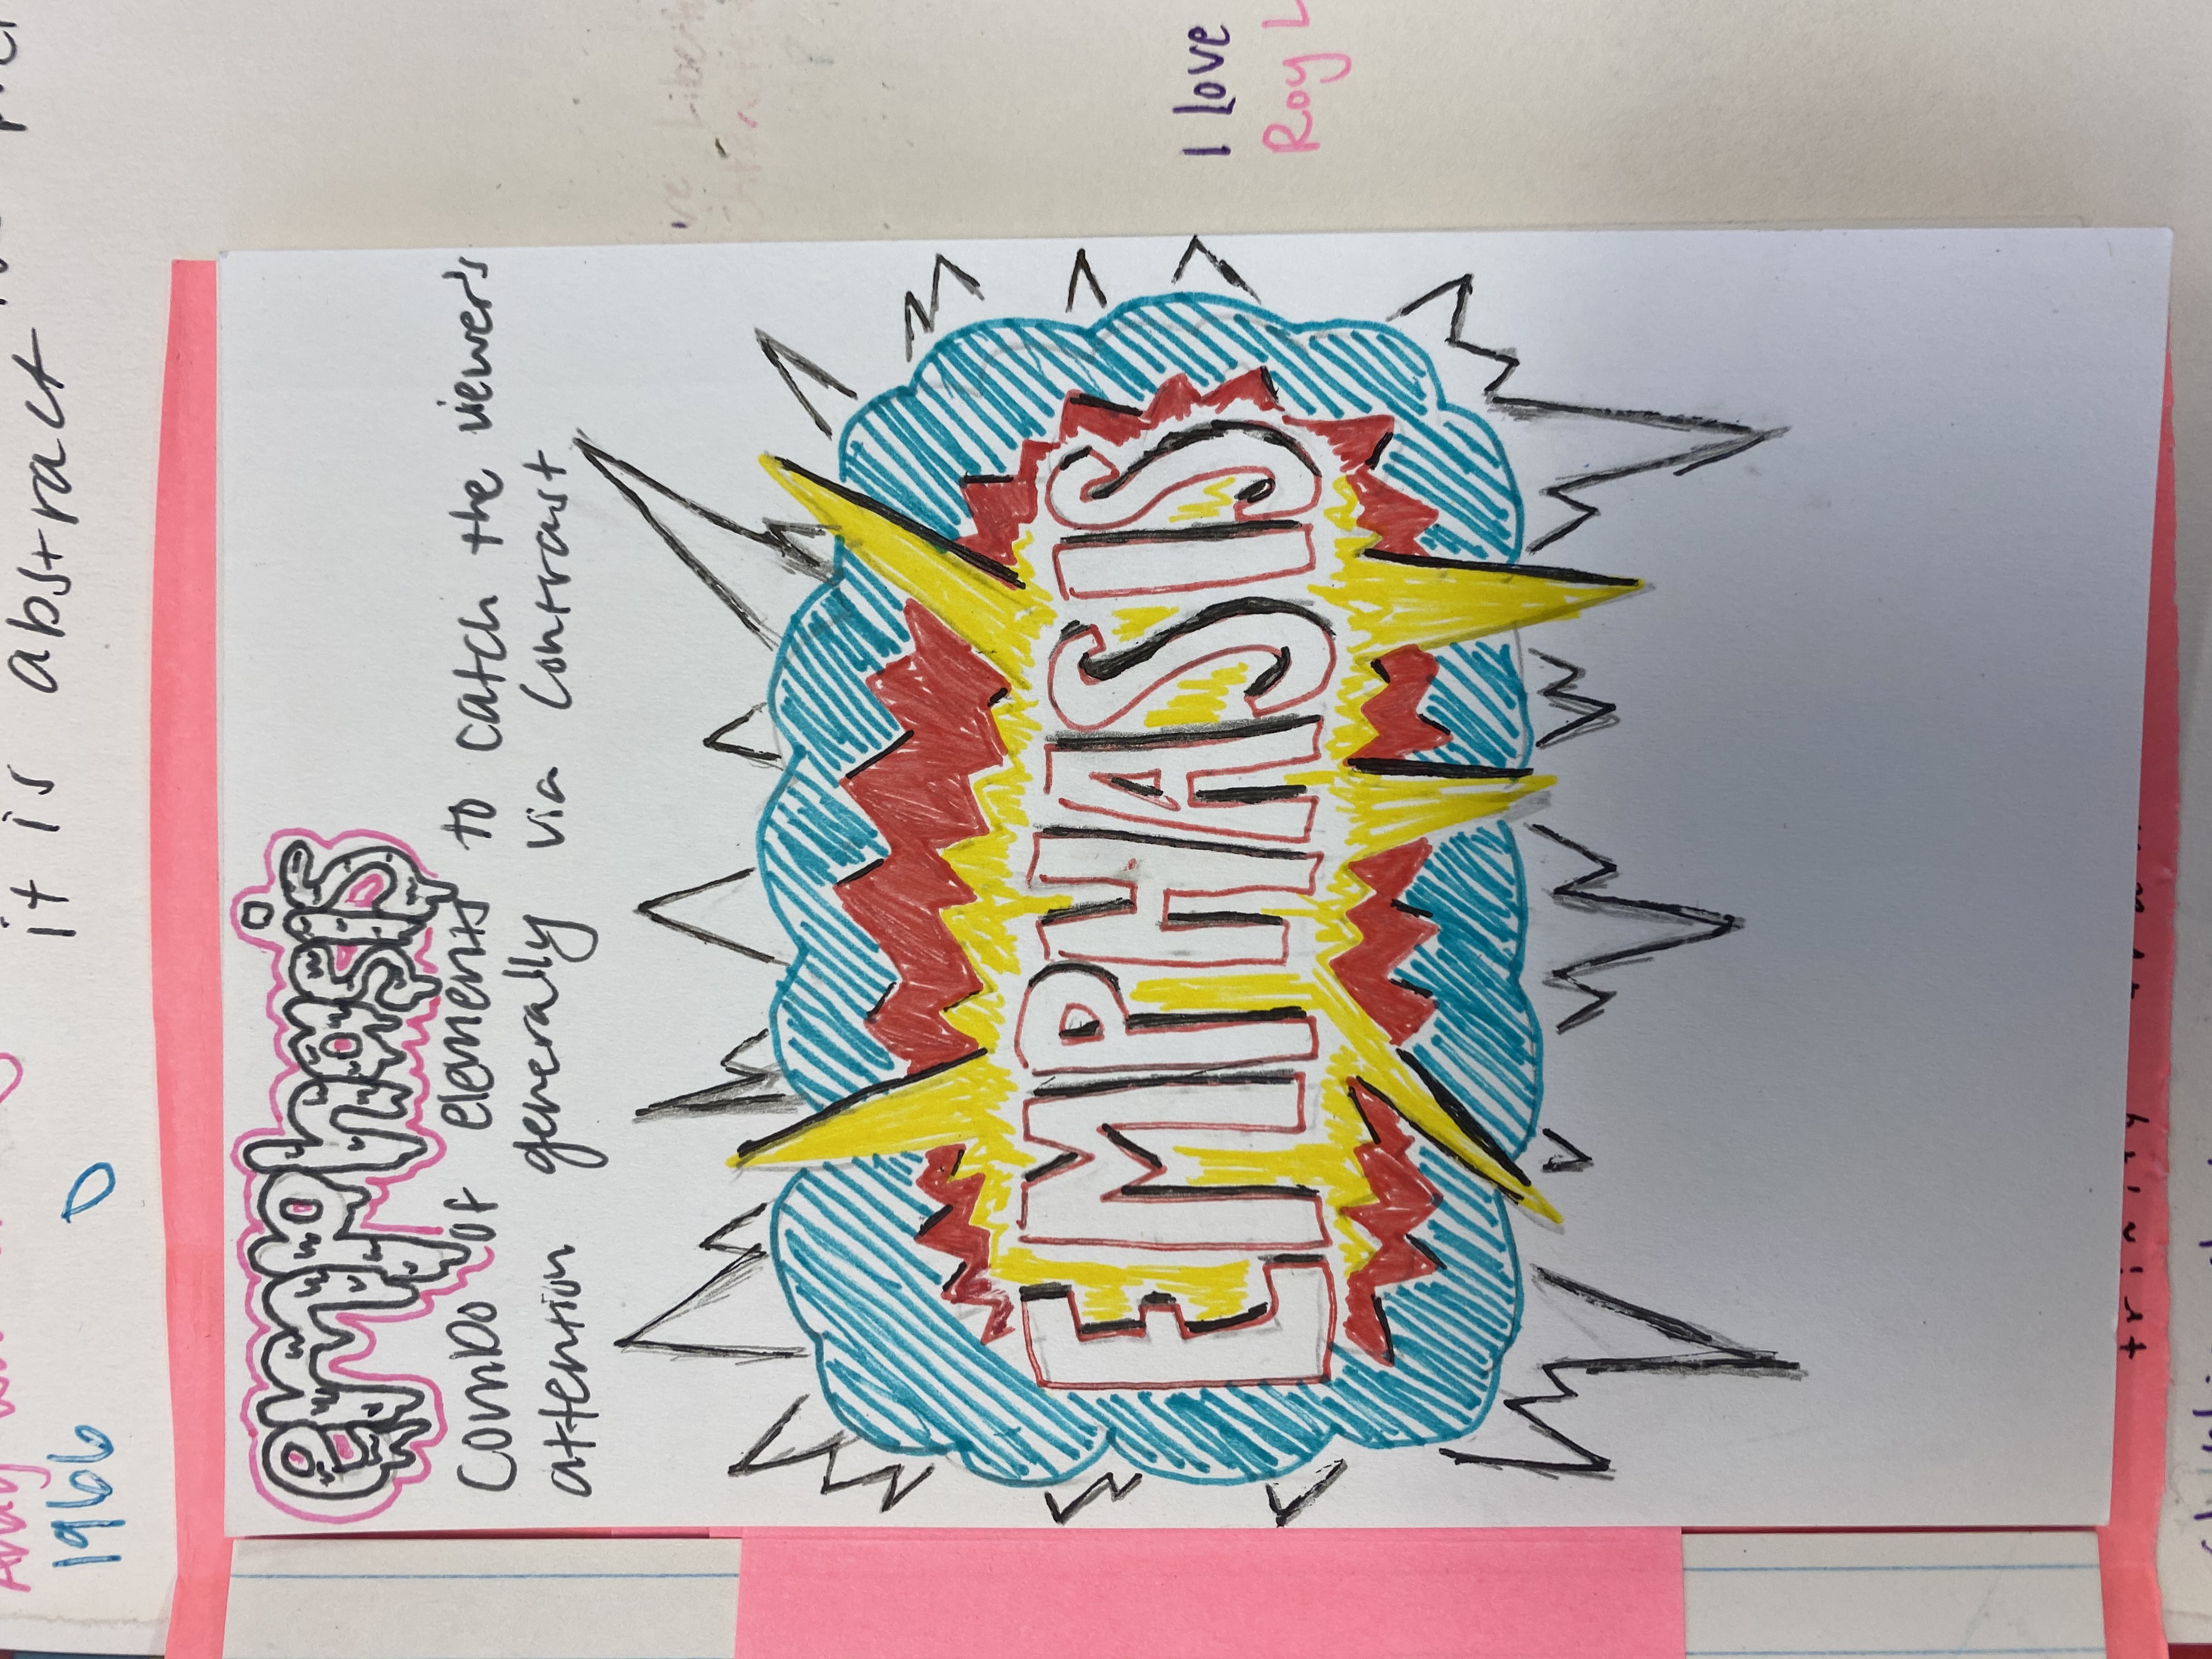 1966
it is abstract
emphasis
combo of elements to catch the viewer's
attention generally via contrast
EMPHASIS
I love
Roy L
trinity